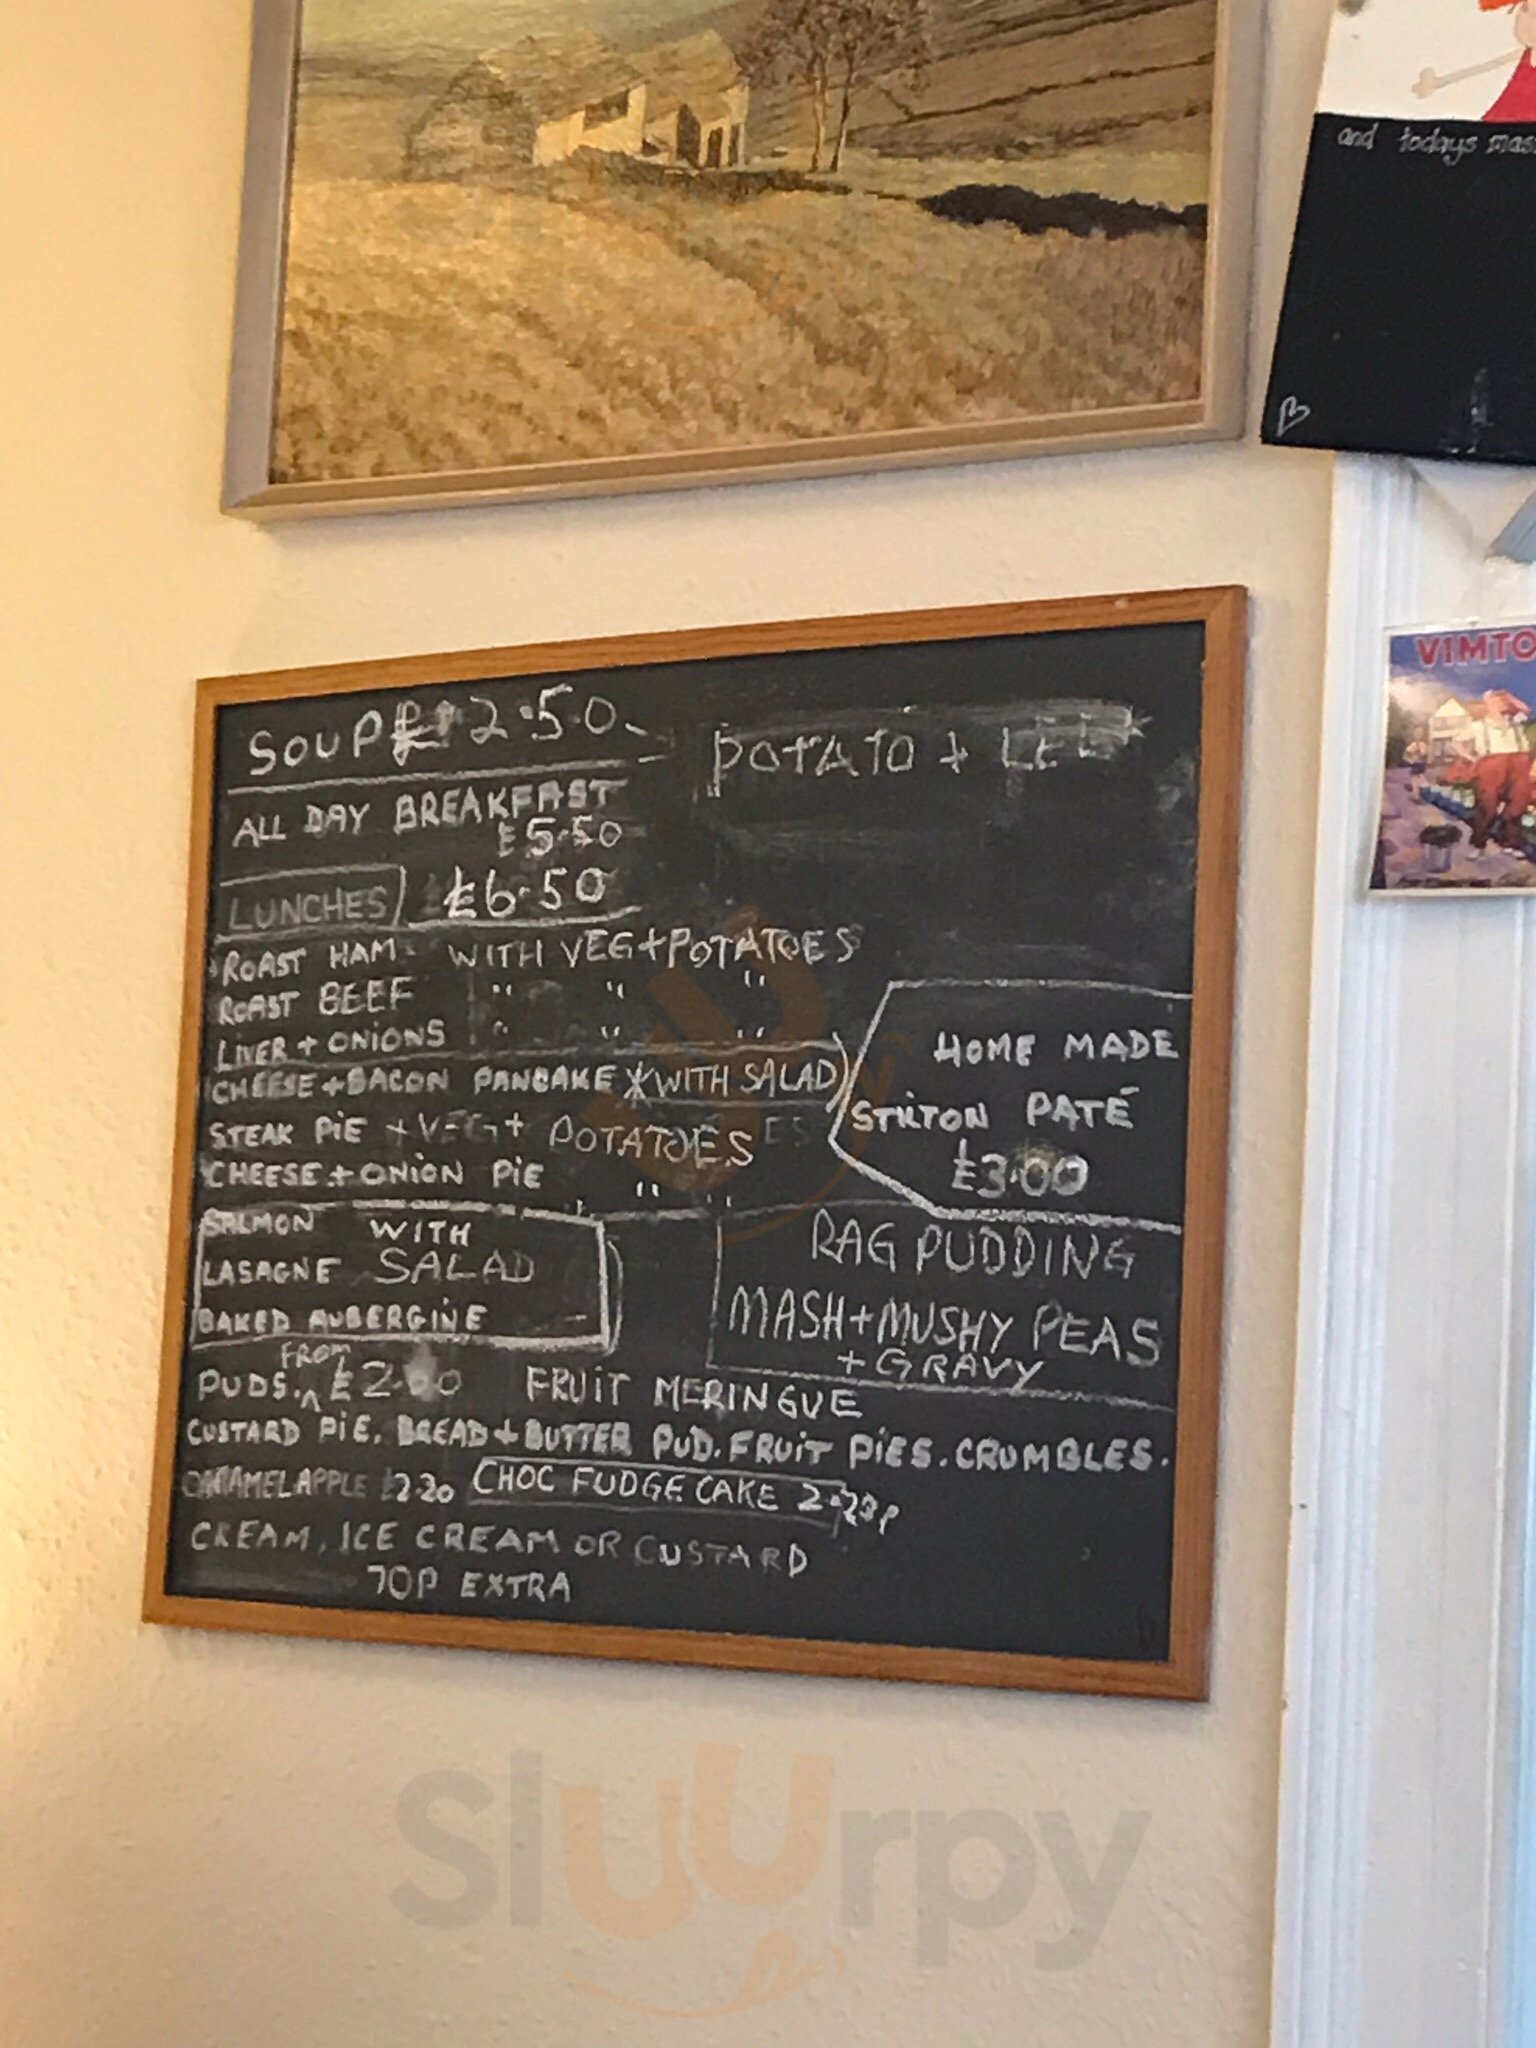 and todays
VIMTO
SOUP £2.50
POTATO +
ALL DAY BREAKFAST
£5.50
LUNCHES £6.50
ROAST HAM WITH VEG + POTATOES
ROAST BEEF " " "
LIVER + ONIONS " " "
CHEESE + BACON PANCAKE * WITH SALAD
STEAK PIE + VEG + POTATOES
CHEESE + ONION PIE " "
HOME MADE
STILTON PATÉ
£3.00
SALMON WITH
LASAGNE SALAD
BAKED AUBERGINE
RAG PUDDING
MASH + MUSHY PEAS
+ GRAVY
PUDS. FROM £2.00 FRUIT MERINGUE
CUSTARD PIE. BREAD + BUTTER PUD. FRUIT PIES. CRUMBLES.
CARAMEL APPLE £2.20 CHOC FUDGE CAKE
CREAM, ICE CREAM OR CUSTARD
70P EXTRA
Sluurpy